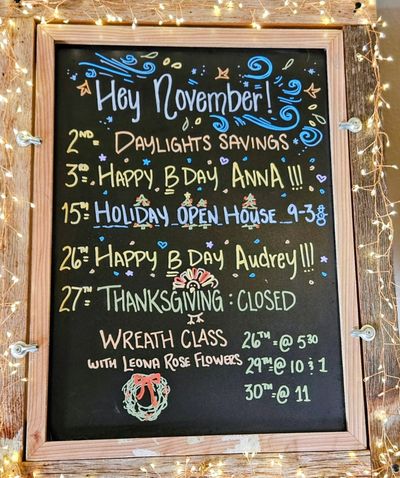 Hey November!
2ND = DAYLIGHTS SAVINGS
3RD. HAPPY BDAY ANNA!!!
15TH= HOLIDAY OPEN HOUSE 9-3
26TH= HAPPY BDAY Audrey!!!
27TH= THANKSGIVING : CLOSED
WREATH CLASS
WITH LEONA ROSE FLOWERS
26TH=@ 530
29TH=@ 10 & 1
30TH=@ 11